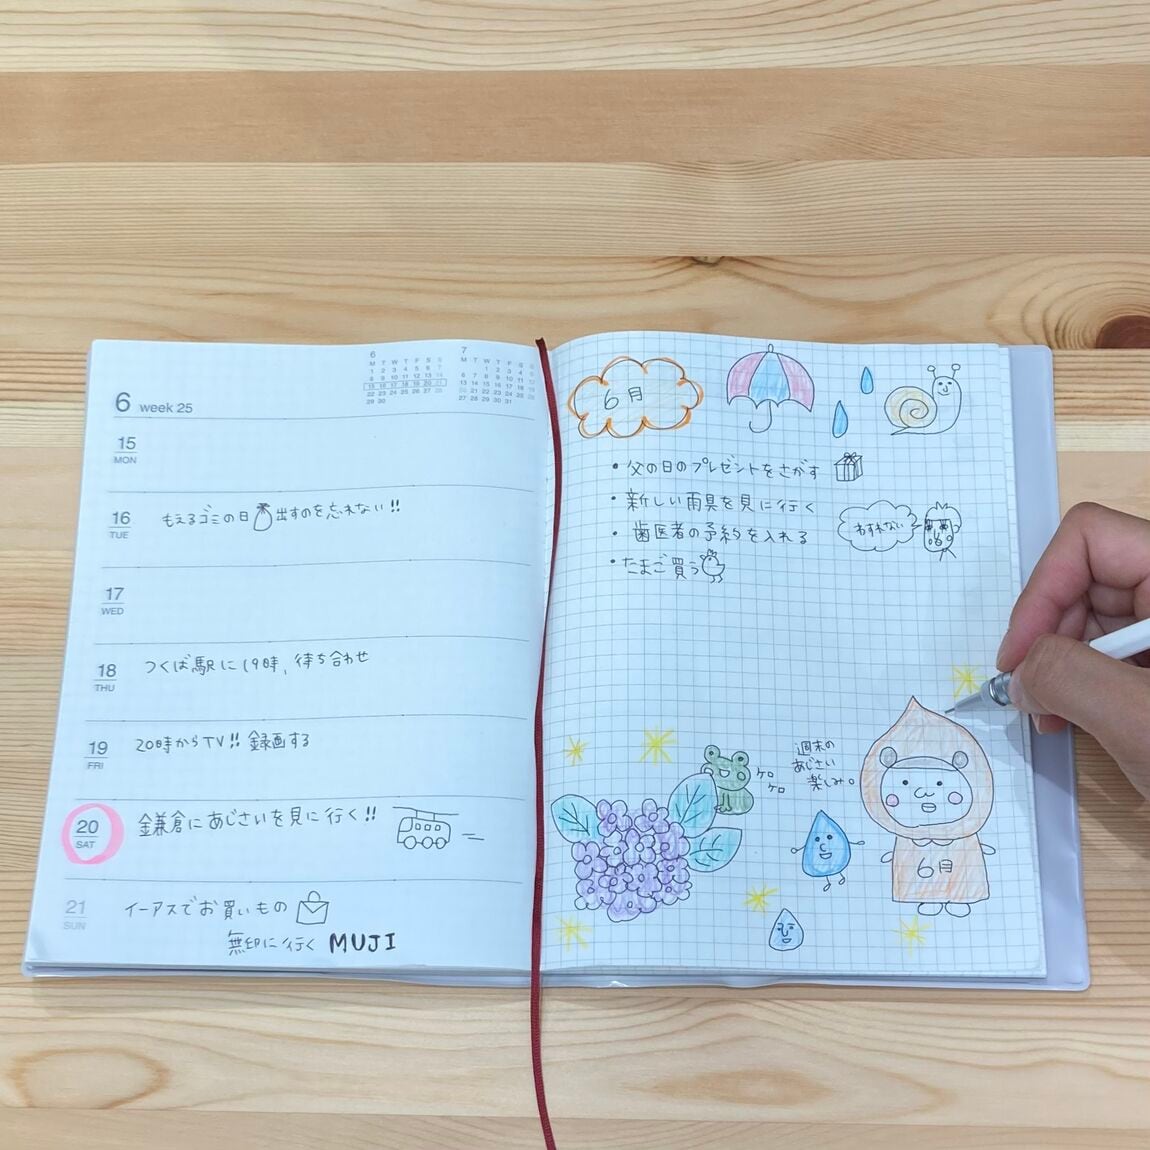 6 week 25
6
M T W T F S S
1 2 3 4 5 6 7
8 9 10 11 12 13 14
15 16 17 18 19 20 21
22 23 24 25 26 27 28
29 30
7
M T W T F S S
1 2 3 4 5
6 7 8 9 10 11 12
13 14 15 16 17 18 19
20 21 22 23 24 25 26
27 28 29 30 31
15
MON
16
TUE
もえるゴミの日 出すのを忘れない!!
17
WED
18
THU
つくば駅に19時、待ち合わせ
19
FRI
20時からTV!! 録画する
20
SAT
鎌倉にあじさいを見に行く!!
21
SUN
イーアスでお買いもの
無印に行く MUJI
6月
・父の日のプレゼントをさがす
・新しい雨具を見に行く
・歯医者の予約を入れる
・たまご買う
わすれない
ケロ
ケロ
週末の
あじさい
楽しみ。
6月